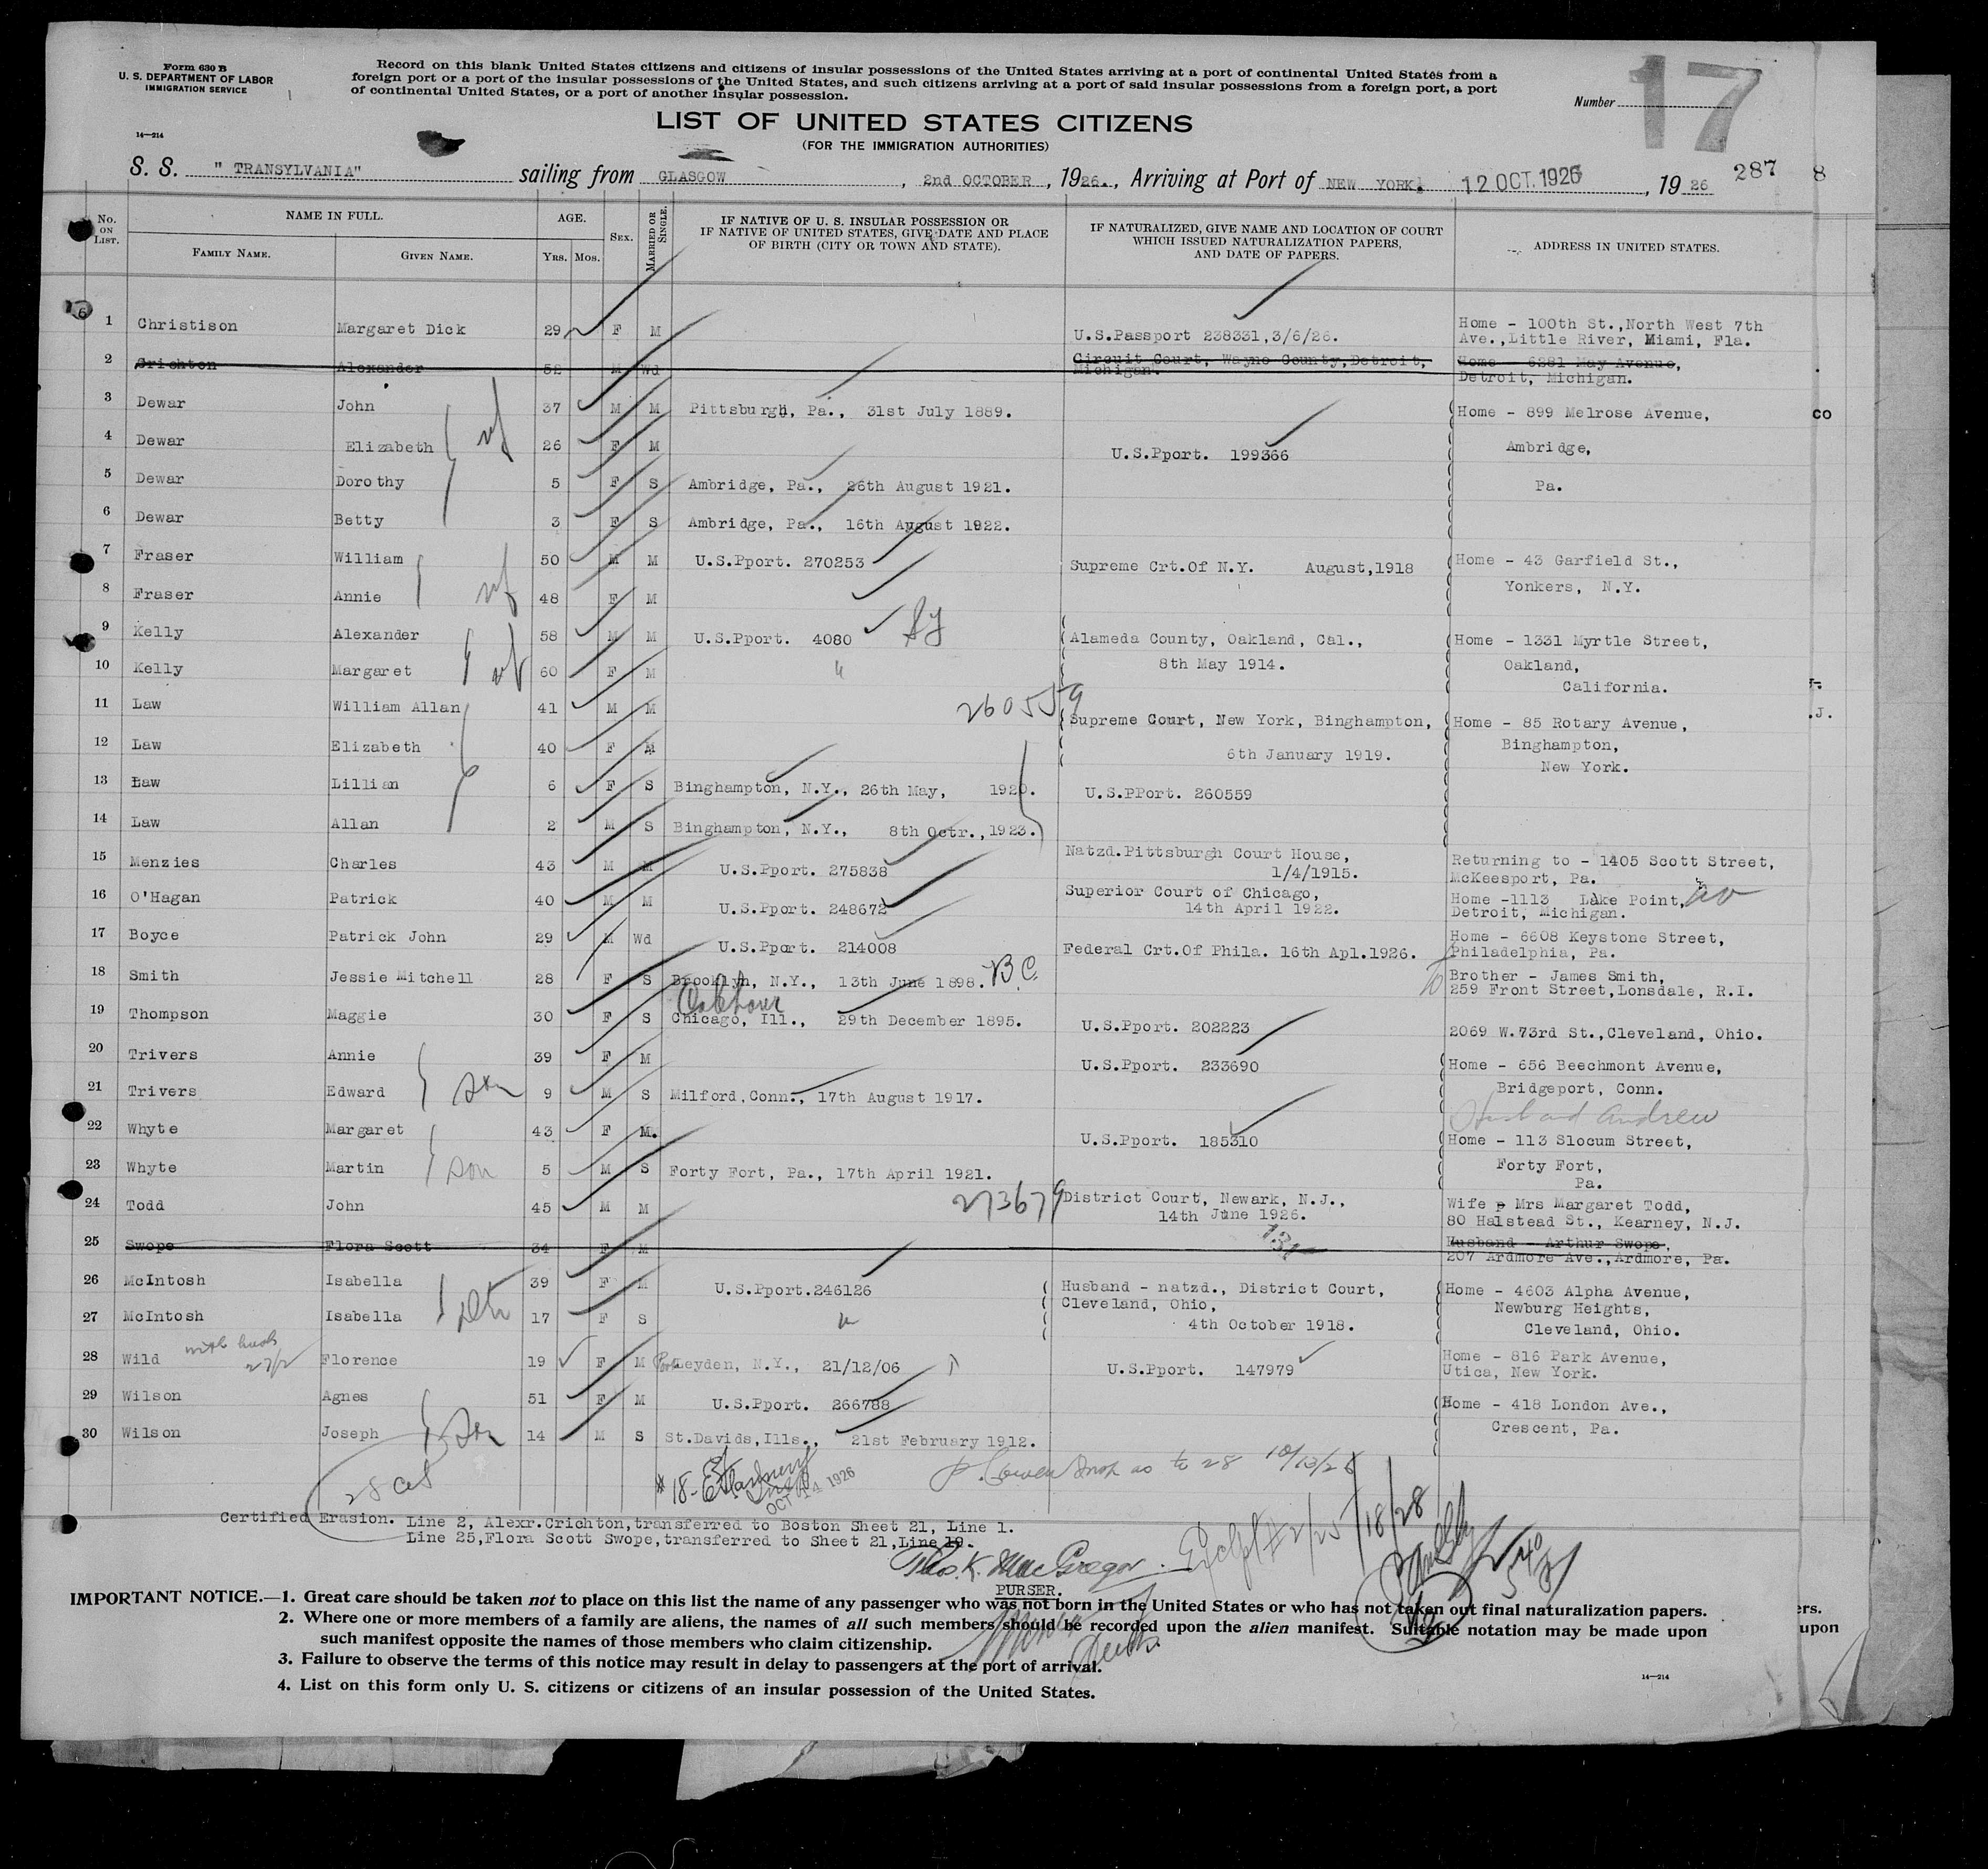 Form 630 B
U. S. DEPARTMENT OF LABOR
IMMIGRATION SERVICE
14—214
Record on this blank United States citizens and citizens of insular possessions of the United States arriving at a port of continental United States from a
foreign port or a port of the insular possessions of the United States, and such citizens arriving at a port of said insular possessions from a foreign port, a port
of continental United States, or a port of another insular possession.
Number 17
LIST OF UNITED STATES CITIZENS
(FOR THE IMMIGRATION AUTHORITIES)
287 8
S. S. " TRANSYLVANIA" sailing from GLASGOW, 2nd OCTOBER, 1926., Arriving at Port of NEW YORK. 12 OCT. 1926, 1926
No. ON LIST. NAME IN FULL. FAMILY NAME. GIVEN NAME. AGE. YRS. MOS. SEX. MARRIED OR SINGLE.
IF NATIVE OF U. S. INSULAR POSSESSION OR
IF NATIVE OF UNITED STATES, GIVE DATE AND PLACE
OF BIRTH (CITY OR TOWN AND STATE).
IF NATURALIZED, GIVE NAME AND LOCATION OF COURT
WHICH ISSUED NATURALIZATION PAPERS,
AND DATE OF PAPERS.
ADDRESS IN UNITED STATES.
1 Christison Margaret Dick 29 F M U.S.Passport 238331,3/6/26. Home - 100th St.,North West 7th
Ave.,Little River, Miami, Fla.
2 Crichton Alexander 52 M Wd Circuit Court, Wayne County,Detroit, Home - 6281 May Avenue,
Michigan. Detroit, Michigan.
3 Dewar John 37 M M Pittsburgh, Pa., 31st July 1889. Home - 899 Melrose Avenue,
4 Dewar Elizabeth 26 F M U.S.Pport. 199366 Ambridge,
5 Dewar Dorothy 5 F S Ambridge, Pa., 26th August 1921. Pa.
6 Dewar Betty 3 F S Ambridge, Pa., 16th August 1922.
7 Fraser William 50 M M U.S.Pport. 270253 Supreme Crt.Of N.Y. August,1918 Home - 43 Garfield St.,
8 Fraser Annie 48 F M Yonkers, N.Y.
9 Kelly Alexander 58 M M U.S.Pport. 4080 Alameda County, Oakland, Cal., Home - 1331 Myrtle Street,
10 Kelly Margaret 60 F M 8th May 1914. Oakland,
California.
11 Law William Allan 41 M M 260559 Supreme Court, New York, Binghampton, Home - 85 Rotary Avenue,
12 Law Elizabeth 40 F M 6th January 1919. Binghampton,
New York.
13 Law Lillian 6 F S Binghampton, N.Y., 26th May, 1920. U.S.PPort. 260559
14 Law Allan 2 M S Binghampton, N.Y., 8th Octr.,1923.
15 Menzies Charles 43 M M U.S.Pport. 275838 Natzd.Pittsburgh Court House, Returning to - 1405 Scott Street,
1/4/1915. McKeesport, Pa.
16 O'Hagan Patrick 40 M M U.S.Pport. 248672 Superior Court of Chicago, Home -1113 Lake Point,
14th April 1922. Detroit, Michigan.
17 Boyce Patrick John 29 M Wd U.S.Pport. 214008 Federal Crt.Of Phila. 16th Apl.1926. Home - 6608 Keystone Street,
Philadelphia, Pa.
18 Smith Jessie Mitchell 28 F S Brooklyn, N.Y., 13th June 1898. B.C. Brother - James Smith,
259 Front Street,Lonsdale, R.I.
19 Thompson Maggie 30 F S Chicago, Ill., 29th December 1895. U.S.Pport. 202223 2069 W.73rd St.,Cleveland, Ohio.
20 Trivers Annie 39 F M U.S.Pport. 233690 Home - 656 Beechmont Avenue,
21 Trivers Edward 9 M S Milford,Conn., 17th August 1917. Bridgeport, Conn.
Husband Andrew
22 Whyte Margaret 43 F M. U.S.Pport. 185310 Home - 113 Slocum Street,
23 Whyte Martin son 5 M S Forty Fort, Pa., 17th April 1921. Forty Fort,
Pa.
24 Todd John 45 M M 273679 District Court, Newark, N.J., Wife p Mrs Margaret Todd,
14th June 1926. 80 Halstead St., Kearney, N.J.
25 Swope Flora Scott 34 F M Husband - Arthur Swope,
207 Ardmore Ave.,Ardmore, Pa.
26 McIntosh Isabella 39 F M U.S.Pport.246126 Husband - natzd., District Court, Home - 4603 Alpha Avenue,
Cleveland, Ohio, Newburg Heights,
27 McIntosh Isabella 17 F S 4th October 1918. Cleveland, Ohio.
28 Wild Florence 19 F M Port Leyden, N.Y., 21/12/06 U.S.Pport. 147979 Home - 816 Park Avenue,
Utica, New York.
29 Wilson Agnes 51 F M U.S.Pport. 266788 Home - 418 London Ave.,
30 Wilson Joseph 14 M S St.Davids,Ills., 21st February 1912. Crescent, Pa.
as to 28 10/13/26
OCT 14 1926
Certified Erasion. Line 2, Alexr.Crichton,transferred to Boston Sheet 21, Line 1.
Line 25,Flora Scott Swope,transferred to Sheet 21,Line 19.
Thos. K. MacGregor.
PURSER.
IMPORTANT NOTICE.—1. Great care should be taken not to place on this list the name of any passenger who was not born in the United States or who has not taken out final naturalization papers.
2. Where one or more members of a family are aliens, the names of all such members should be recorded upon the alien manifest. Suitable notation may be made upon
such manifest opposite the names of those members who claim citizenship.
3. Failure to observe the terms of this notice may result in delay to passengers at the port of arrival.
4. List on this form only U. S. citizens or citizens of an insular possession of the United States.
14—214